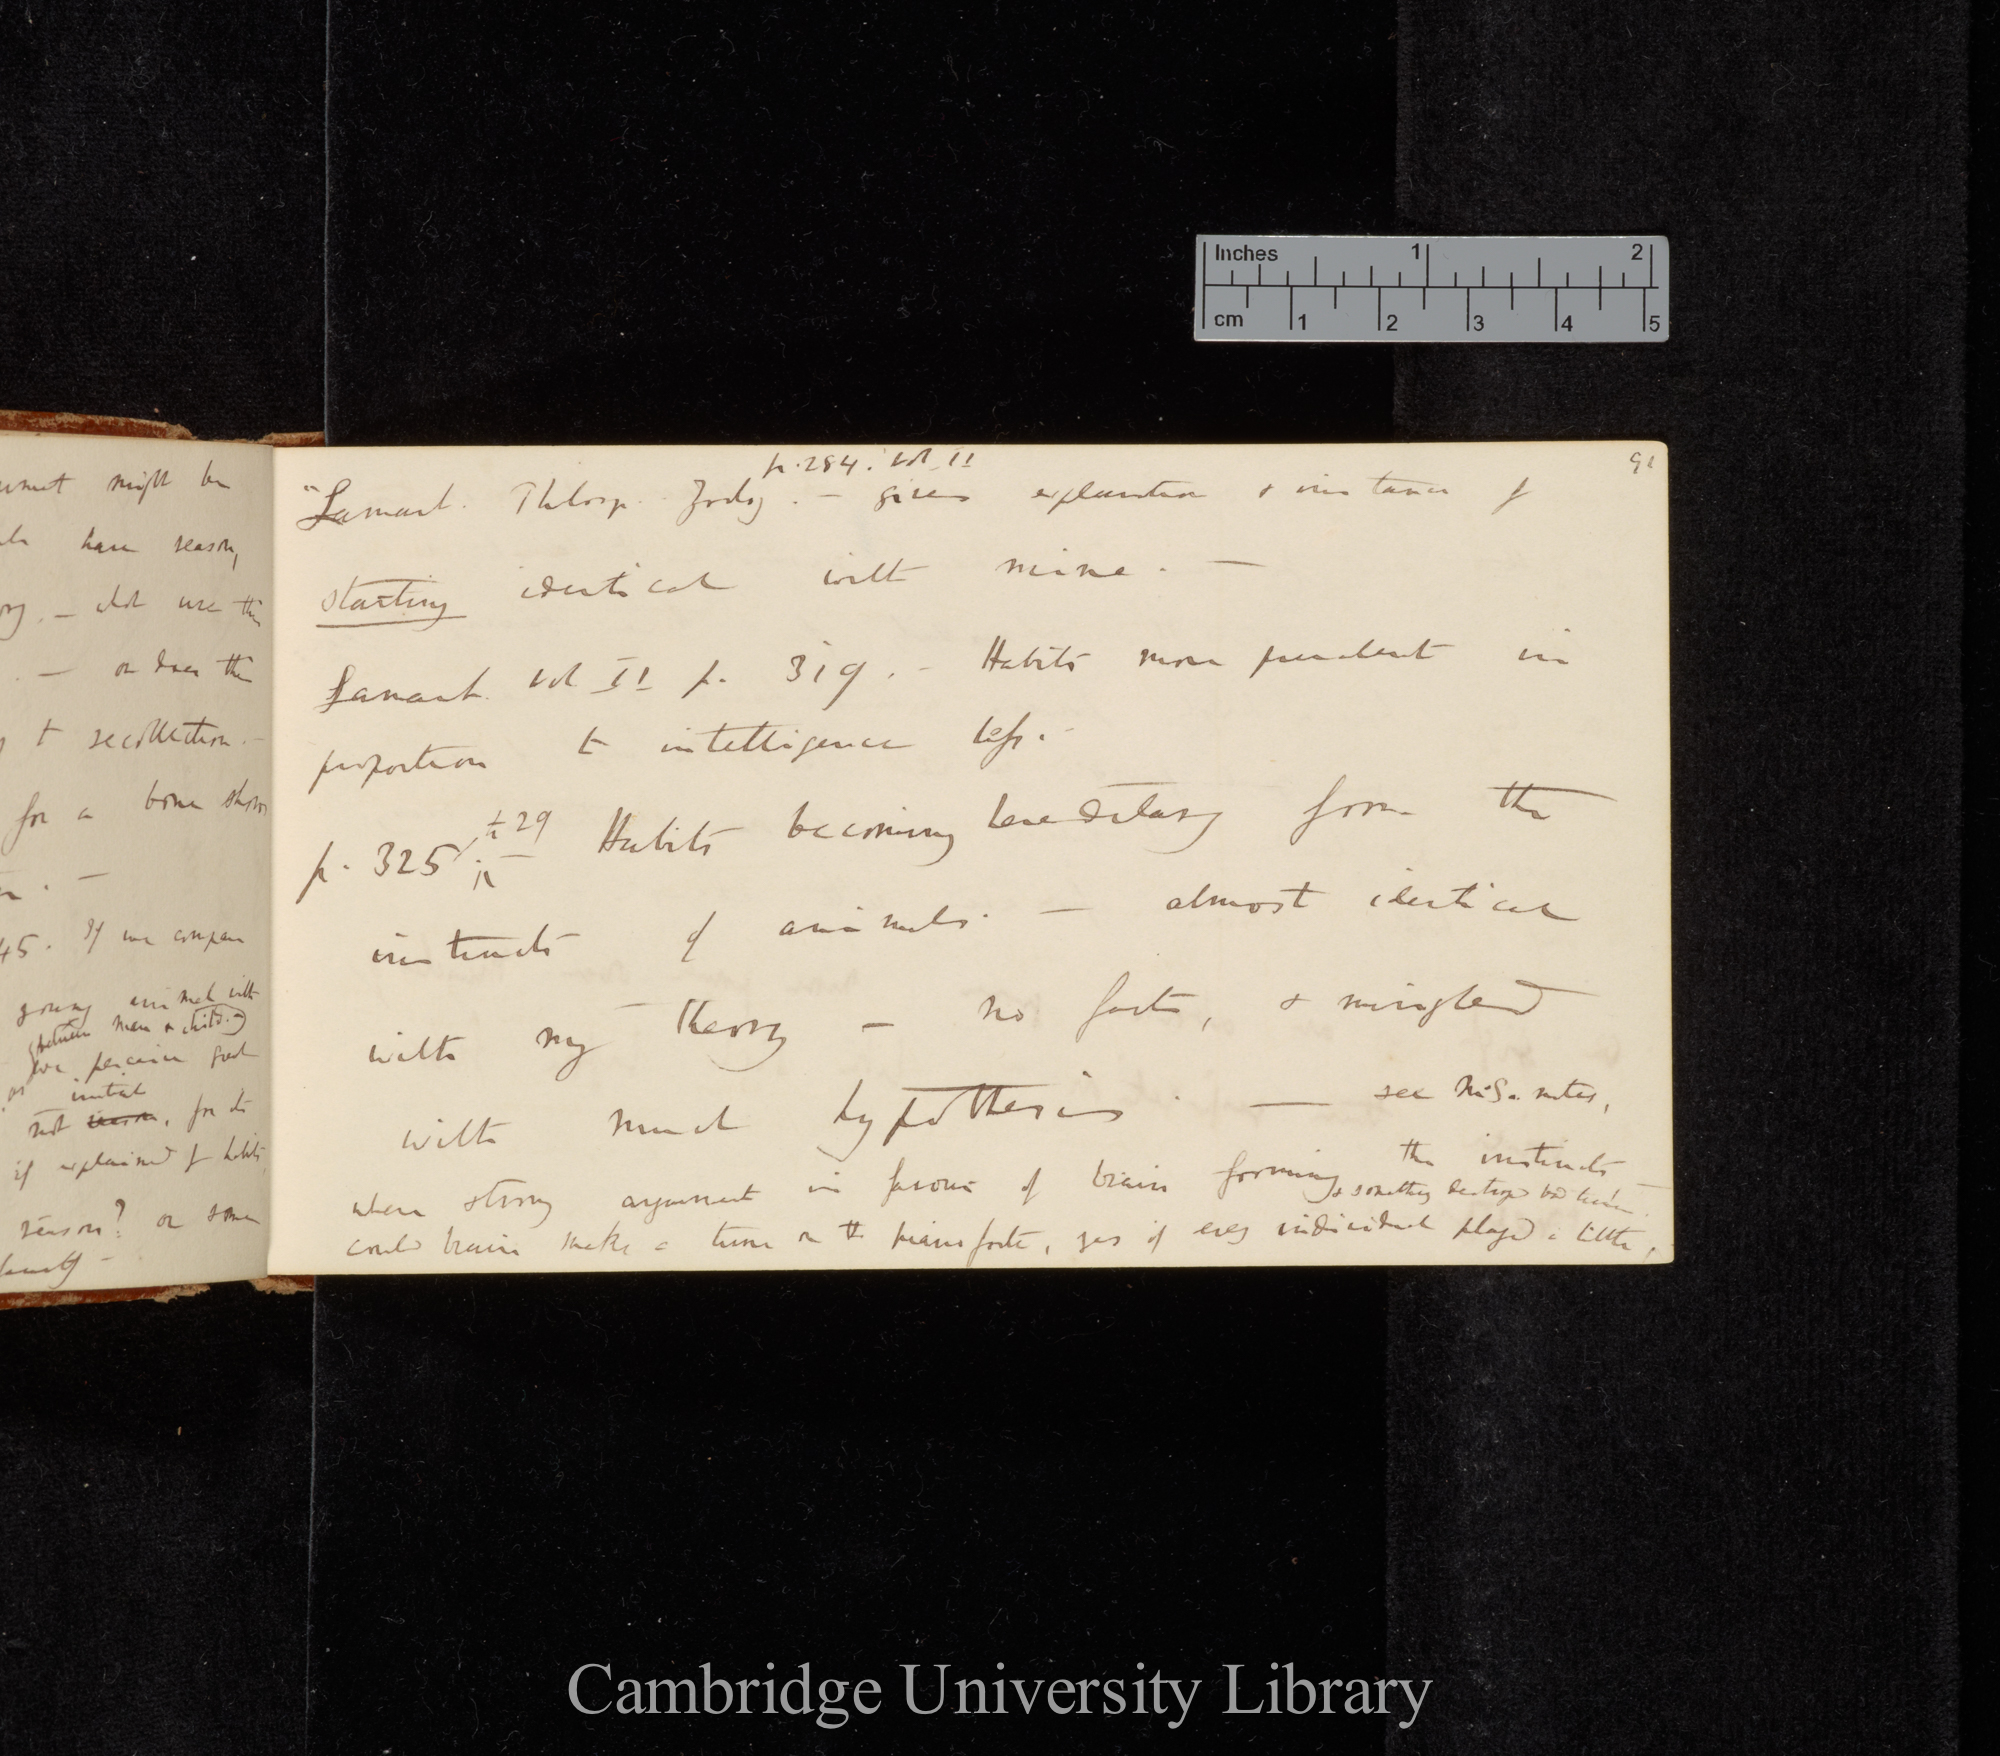 umet might be
have reason,
. — when use this
. — or does the
to recollection. —
for a bone shows
. —
45. If we compare
young animal with
(between man & child.)
we perceive great
or initial
not reason, for it
if explained of habits,
reason? or some
faculty —
91
p. 284. Vol II
"Lamarck. Philosop. Zoolog. — gives explanation & instance of
starting identical with mine. —
Lamarck. Vol II p. 319. — Habits more prevalent in
proportion to intelligence less. —
to 29
p. 325 ; — Habits becoming hereditary form the
instincts of animals. — almost identical
with my theory — no facts, & mingled
with much hypothesis. — see M.S. notes,
where strong argument in favour of brain forming the instincts —
& something destroyed bad
could brain make a tune on the pianoforte, yes if every individual played a little,
Inches 1 2
cm 1 2 3 4 5
Cambridge University Library